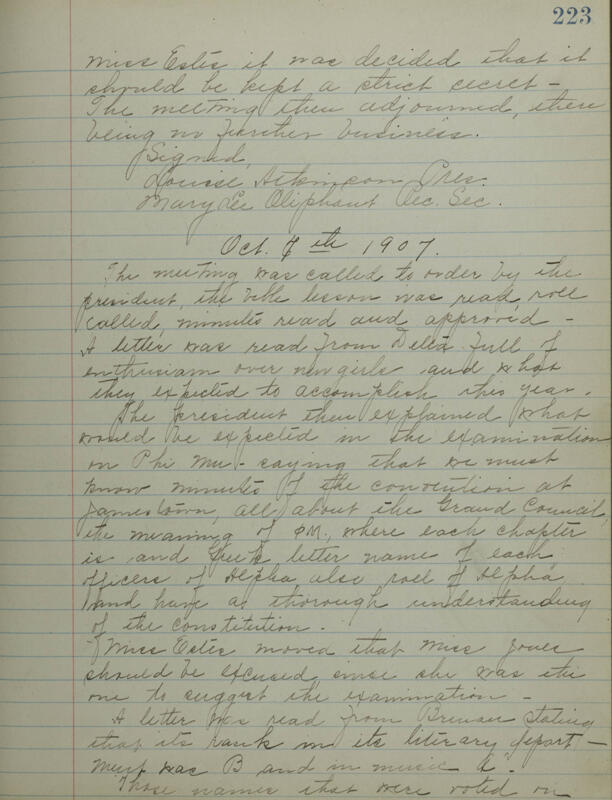 223
Miss Estes it was decided that it
should be kept a strict secret -
The meeting then adjourned, there
being no further business.
Signed,
Louise Atkinson Pres.
Mary Lee Oliphant Rec. Sec.
Oct. 7th 1907.
The meeting was called to order by the
president, the bible lesson was read, roll
called, minutes read and approved -
A letter was read from Delta full of
enthusiasm over new girls and what
they expected to accomplish this year.
The president then explained what
would be expected in the examination
on Phi Mu - saying that we must
know minutes of the convention at
Jamestown, all about the Grand Council,
the meaning of ΦM., where each chapter
is and Greek letter name of each,
officers of Alpha, also roll of Alpha,
and have as thorough understanding
of the constitution.
Miss Estes moved that Miss Jones
should be excused since she was the
one to suggest the examination -
A letter was read from Brenau stating
that its rank in its literary depart-
ment was B and in music A.
Those names that were voted on